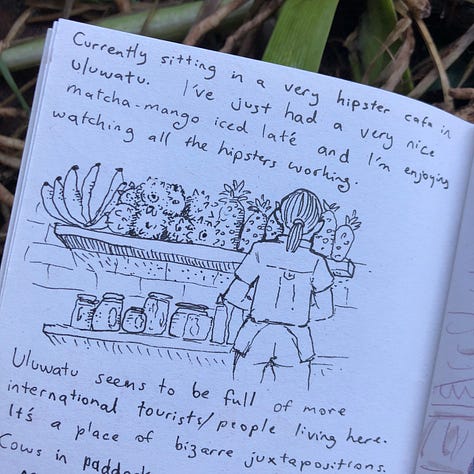 Currently sitting in a very hipster cafe in
Uluwatu. I've just had a very nice
matcha-mango iced laté and I'm enjoying
watching all the hipsters working.
Uluwatu seems to be full of more
international tourists/people living here.
It's a place of bizarre juxtapositions.
Cows in